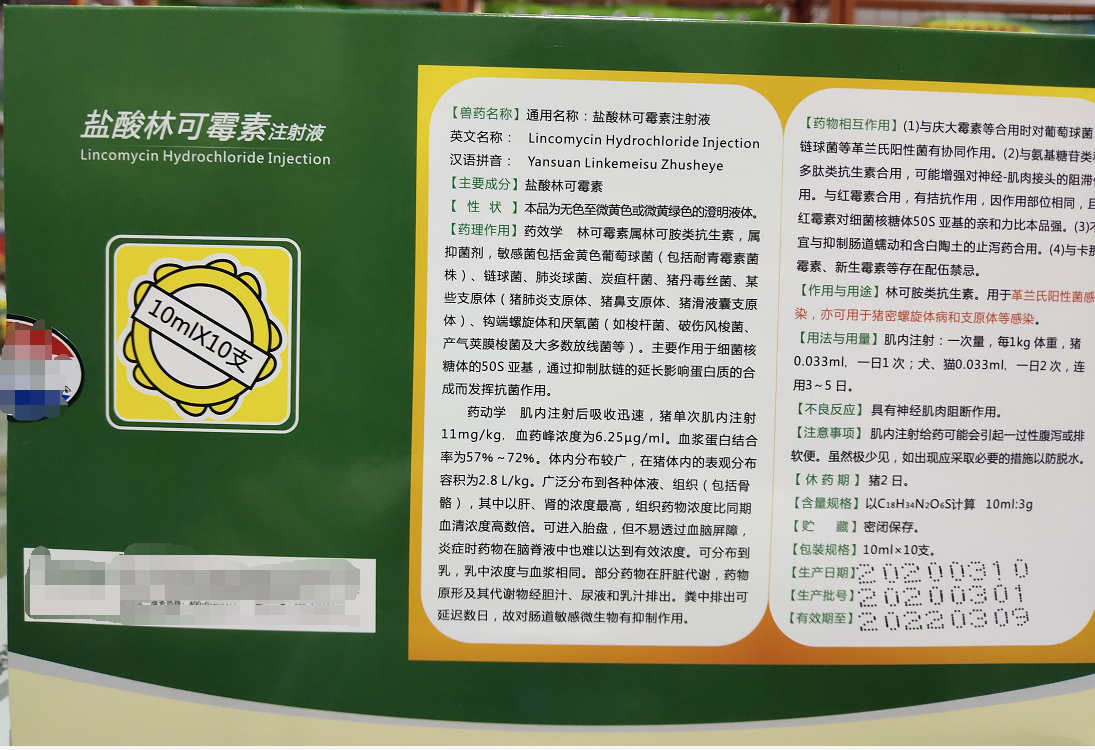 盐酸林可霉素注射液
Lincomycin Hydrochloride Injection
10mlX10支
【兽药名称】通用名称：盐酸林可霉素注射液
英文名称： Lincomycin Hydrochloride Injection
汉语拼音： Yansuan Linkemeisu Zhusheye
【主要成分】盐酸林可霉素
【 性 状 】本品为无色至微黄色或微黄绿色的澄明液体。
【药理作用】药效学 林可霉素属林可胺类抗生素，属
抑菌剂，敏感菌包括金黄色葡萄球菌（包括耐青霉素菌
株）、链球菌、肺炎球菌、炭疽杆菌、猪丹毒丝菌、某
些支原体（猪肺炎支原体、猪鼻支原体、猪滑液囊支原
体）、钩端螺旋体和厌氧菌（如梭杆菌、破伤风梭菌、
产气荚膜梭菌及大多数放线菌等）。主要作用于细菌核
糖体的50S 亚基，通过抑制肽链的延长影响蛋白质的合
成而发挥抗菌作用。
药动学 肌内注射后吸收迅速，猪单次肌内注射
11mg/kg，血药峰浓度为6.25μg/ml。血浆蛋白结合
率为57%～72%。体内分布较广，在猪体内的表观分布
容积为2.8 L/kg。广泛分布到各种体液、组织（包括骨
骼），其中以肝、肾的浓度最高，组织药物浓度比同期
血清浓度高数倍。可进入胎盘，但不易透过血脑屏障，
炎症时药物在脑脊液中也难以达到有效浓度。可分布到
乳，乳中浓度与血浆相同。部分药物在肝脏代谢，药物
原形及其代谢物经胆汁、尿液和乳汁排出。粪中排出可
延迟数日，故对肠道敏感微生物有抑制作用。
【药物相互作用】(1)与庆大霉素等合用时对葡萄球菌
链球菌等革兰氏阳性菌有协同作用。(2)与氨基糖苷类和
多肽类抗生素合用，可能增强对神经-肌肉接头的阻滞作
用。与红霉素合用，有拮抗作用，因作用部位相同，且
红霉素对细菌核糖体50S 亚基的亲和力比本品强。(3)不
宜与抑制肠道蠕动和含白陶土的止泻药合用。(4)与卡那
霉素、新生霉素等存在配伍禁忌。
【作用与用途】林可胺类抗生素。用于革兰氏阳性菌感
染，亦可用于猪密螺旋体病和支原体等感染。
【用法与用量】肌内注射：一次量，每1kg 体重，猪
0.033ml，一日1次；犬、猫0.033ml，一日2次，连
用3～5 日。
【不良反应】具有神经肌肉阻断作用。
【注意事项】 肌内注射给药可能会引起一过性腹泻或排
软便。虽然极少见，如出现应采取必要的措施以防脱水。
【 休 药 期 】 猪2 日。
【含量规格】以C₁₈H₃₄N₂O₆S计算 10ml:3g
【贮 藏】密闭保存。
【包装规格】10ml×10支。
【生产日期】20200310
【生产批号】20200301
【有效期至】20220309